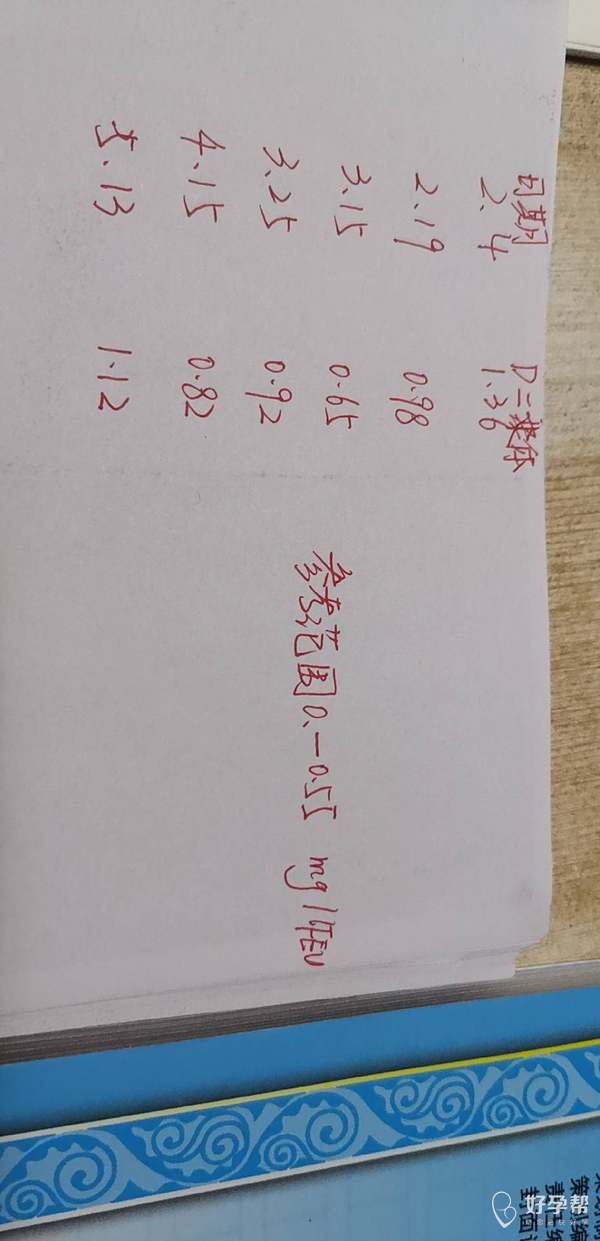 日期 D二聚体
2.4 1.36
2.19 0.98
3.15 0.65
3.25 0.92
4.15 0.82
5.13 1.12
参考范围0.-0.55 mg/LFEU
好孕帮